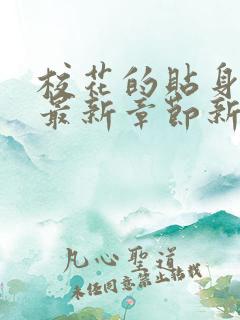 校花的贴身
最新章节新
凡心聖道
未经同意禁止转载